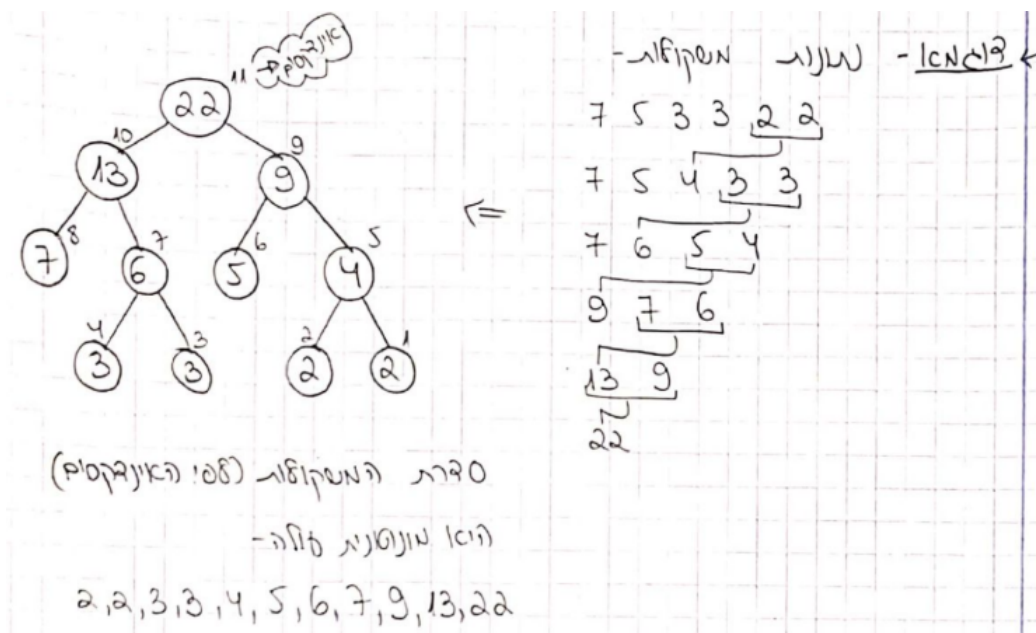 דוגמא - נתונות משקולות -
7 5 3 3 2 2
7 5 4 3 3
7 6 5 4
9 7 6
13 9
22
⇐
אינדקסים
11
22
10 9
13 9
8 7 6 5
7 6 5 4
4 3 2 1
3 3 2 2
סדרת המשקולות (לפי האינדקסים)
היא מונוטונית עולה -
2,2,3,3,4,5,6,7,9,13,22